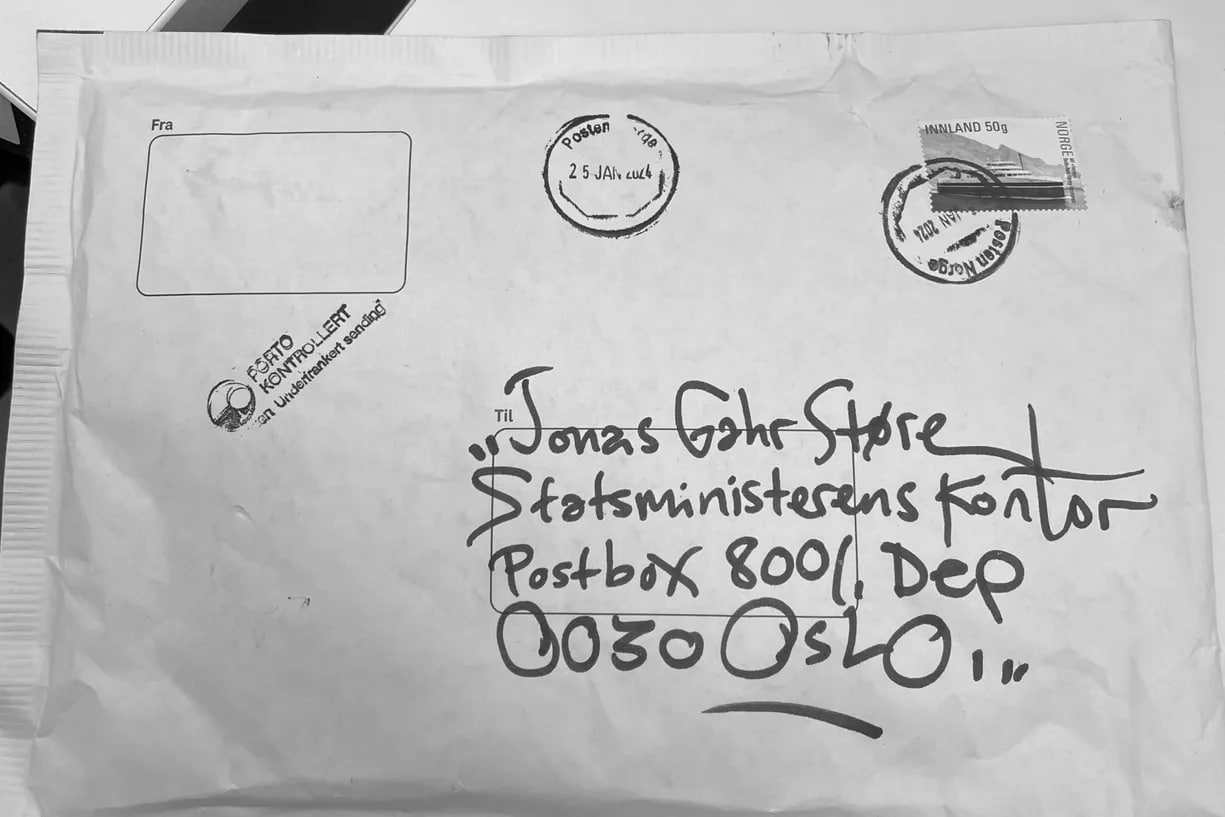 Fra
Posten Norge
25 JAN 2024
INNLAND 50g
NORGE
JAN 2024
Posten Norge
PORTO
KONTROLLERT
en Underfrankert sending"
Til
„Jonas Gahr Støre
Statsministerens Kontor
Postbox 800/. Dep
0030 OsLO.„